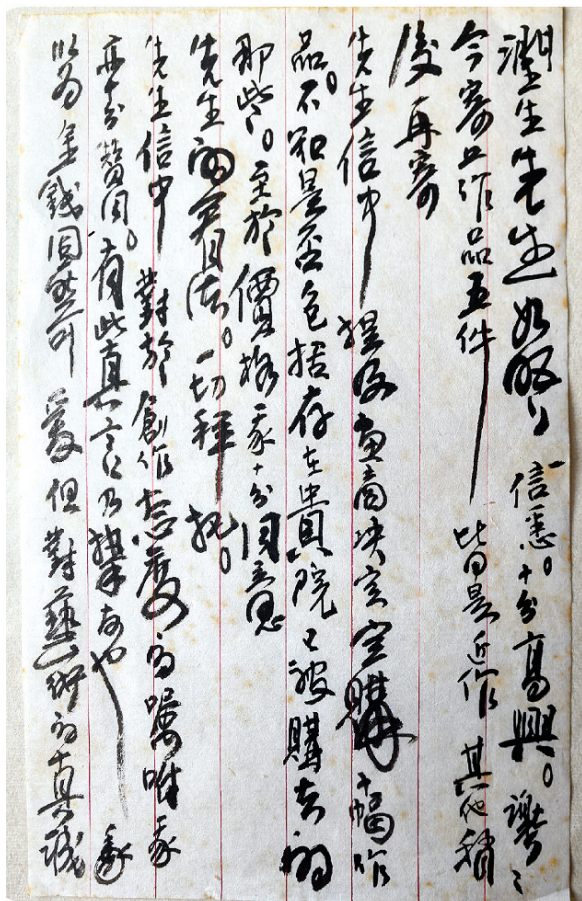 潤生先生如晤 信悉。十分高興。謝謝
今寄上作品五件 皆是近作 其他稍
後再寄
先生信中提及畫商決定定購十幅作
品。不知是否包括存在貴院已被購去的
那些。至於價格 我十分同意
先生的看法。一切拜托。
先生信中 對於創作態度的囑咐 我
亦十分贊同。有此真言乃摯友也 我
以為金錢固然可愛 但對藝術的真誠